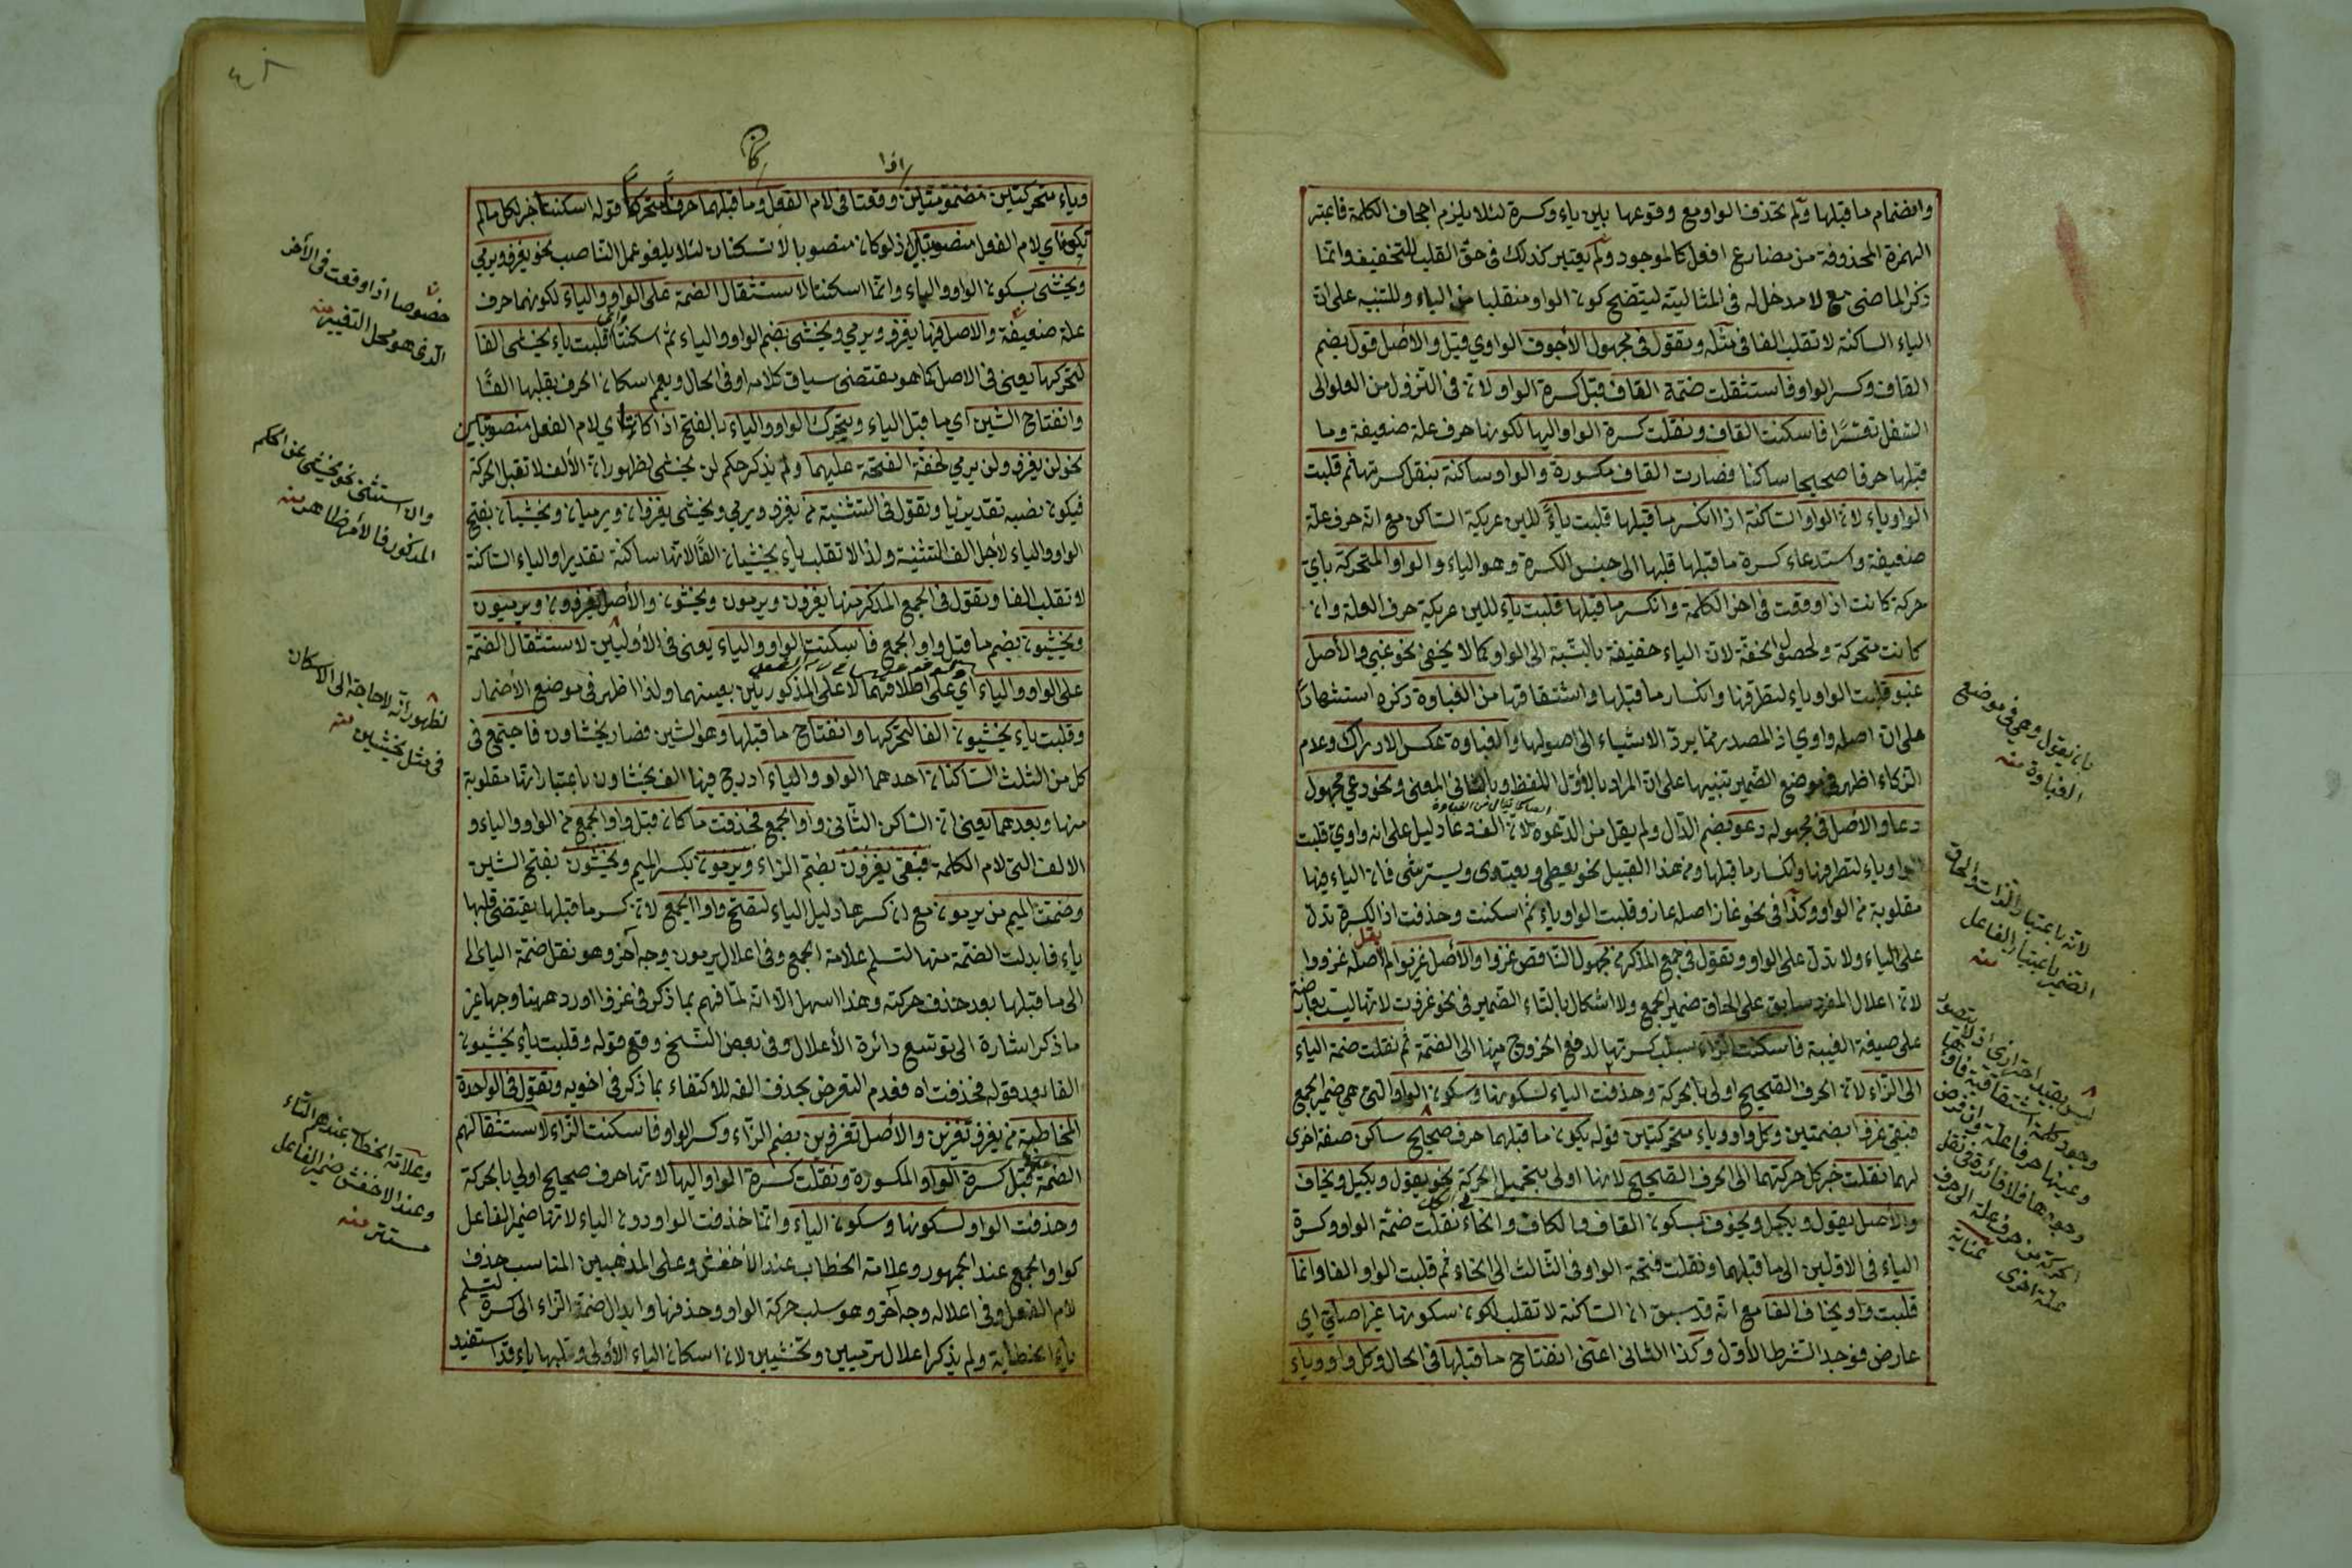 وانضمام ما قبلها ولم تحذف الواو مع وقوعها بين ياء وكسرة لئلا يلزم اجحاف الكلمة فاعتبر
الهمزة المحذوفة من مضارع افعل كالموجود ولم يعتبر كذلك في حق القلب للتخفيف وانما
ذكر الماضي مع لا مدخل له في المثالية ليتضح كون الواو منقلبا من الياء وللتنبيه على ان
الياء الساكنة لا تقلب الفا في مثله وتقول في مجهول الأجوف الواوي قيل والأصل قول بضم
القاف وكسر الواو فاستثقلت ضمة القاف قبل كسرة الواو لان في النزول من العلو الى
السفل تعسّرا فاسكنت القاف ونقلت كسرة الواو اليها لكونها حرف علة ضعيفة وما
قبلها حرفا صحيحا ساكنا فصارت القاف مكسورة والواو ساكنة بنقل كسرتها ثم قلبت
الواو ياء لان الواو الساكنة اذا انكسر ما قبلها قلبت ياءً للين عريكة الساكن مع انه حرف علة
ضعيفة واستدعاء كسرة ما قبلها قلبها الى جنس الكسرة وهو الياء والواو المتحركة باي
حركة كانت اذا وقعت في اخر الكلمة وانكسر ما قبلها قلبت ياء للين عريكة حرف العلة وان
كانت متحركة ولحصول الخفة لان الياء خفيفة بالنسبة الى الواو كما لا يخفى نحو غبي والأصل
غبو قلبت الواو ياء لتطرفها وانكسار ما قبلها واشتقاقها من الغباوة ذكره استشهاداً
على ان اصله واوي اذ المصدر مما يردّ الاشياء الى اصولها والغباوة عكس الادراك وعدم
الذكاء اظهر في موضع الضمير تنبيها على ان المراد بالأول اللفظ وبالثاني المعنى ونحو دعي مجهول
دعا والأصل في مجهوله دعو بضم الدال ولم يقل من الدعوة لان الف دعا دليل على انه واوي قلبت
الواو ياء لتطرفها وانكسار ما قبلها ومن هذا القبيل نحو يعطي ويعتدى ويسترشى فان الياء فيها
مقلوبة من الواو وكذا في نحو غاز اصله غازو قلبت الواو ياء ثم اسكنت وحذفت اذ الكسرة تدل
على الياء ولا تدل على الواو وتقول في جمع المذكر من مجهول الناقص غزوا والأصل غزيوا لم يقل اصله غزووا
لان اعلال المفرد سابق على الحاق ضمير الجمع ولا اشكال بالتاء الضمير في نحو غزوت لانها ليست بعارضة
على صيغة الغيبة فاسكنت الزاء بسلب كسرتها لدفع الخروج منها الى الضمة ثم نقلت ضمة الياء
الى الزاء لان الحرف الصحيح اولى بالحركة وحذفت الياء لسكونها وسكون الواو التي هي ضمير الجمع
فبقي غزوا بضمتين وكل واو وياء متحركتين قوله يكون ما قبلهما حرف صحيح ساكن صفة اخرى
لهما نقلت خبر كل حركتهما الى الحرف الصحيح لانها اولى بتحميل الحركة نحو يقول ويكيل ويخاف
والأصل يقول ويكيل ويخوف بسكون القاف والكاف والخاء نقلت ضمة الواو وكسرة
الياء في الاولين الى ما قبلهما ونقلت فتحة الواو في الثالث الى الخاء ثم قلبت الواو الفا وانما
قلبت واو يخاف الفا مع انه قد سبق ان الساكنة لا تقلب لكون سكونها غير اصلي اي
عارض فوجد الشرط الأول وكذا الثاني اعني انفتاح ما قبلها في الحال وكل واو وياء
بان يقول وهي في موضع
الغباوة منه
لانه باعتبار الذات والحاق
الضمير باعتبار الفاعل
منه
وياء متحركتين مضمومتين وقعتا في لام الفعل وما قبلهما حرفا متحركا قوله اسكنتا خبر لكل ما لم
تكونا اي لام الفعل منصوبتين اذ لو كان منصوبا لا تسكنان لئلا يلغو عمل الناصب نحو يغزو ويرمي
ويخشى بسكون الواو والياء وانما اسكنتا لاستثقال الضمة على الواو والياء لكونهما حرف
علة ضعيفة والاصل فيها يغزو ويرمي ويخشى بضم الواو والياء ثم اسكنتا قلبت ياء يخشى الفا
لتحركها يعني في الاصل كما هو مقتضى سياق كلامه او في الحال ويعم اسكان الحرف بقلبها الفًا
وانفتاح الشين اي ما قبل الياء ويتحرك الواو والياء بالفتح اذا كانتا اي لام الفعل منصوبتين
نحو لن يغزو ولن يرمي لخفة الفتحة عليهما ولم يذكر حكم لن يخشى لظهور ان الألف لا تقبل الحركة
فيكون نصبه تقديريا وتقول في التثنية من يغزو ويرمي ويخشى يغزوان ويرميان ويخشيان بفتح
الواو والياء لأجل الف التثنية ولذا لا تقلب ياء يخشيان الفًا لانها ساكنة تقديرا والياء الساكنة
لا تقلب الفا وتقول في الجمع المذكر منها يغزون ويرمون ويخشون والأصل يغزوون ويرميون
ويخشيون بضم ما قبل واو الجمع فاسكنت الواو والياء يعني في الأوليين لاستثقال الضمة
على الواو والياء اي على اطلاقهما لا على المذكورين بعينهما ولذا اظهر في موضع الأضمار
وقلبت ياء يخشيون الفا لتحركها وانفتاح ما قبلها وهو الشين فصار يخشاون فاجتمع في
كل من الثلث الساكنان احدهما الواو والياء ادرج فيها الف يخشاون باعتبار انها مقلوبة
منها وبعدهما يعني ان الساكن الثاني واو الجمع فحذفت ما كان قبل واو الجمع من الواو والياء و
الالف التي لام الكلمة فبقي يغزون بضم الزاء ويرمون بكسر الميم ويخشون بفتح الشين
وضمت الميم من يرمون مع ان كسرها دليل الياء لتصح واو الجمع لان كسر ما قبلها يقتضي قلبها
ياء فابدلت الضمة منها لتسلم علامة الجمع وفي اعلال يرمون وجه آخر وهو نقل ضمة الياء
الى ما قبلها بعد حذف حركته وهذا اسهل الا انه لما فهم بما ذكر في غزوا اورد ههنا وجها غير
ما ذكر اشارة الى توسيع دائرة الأعلال وفي بعض النسخ وقع قوله وقلبت ياء يخشيون
الفا بعد قوله فحذفت اه فعدم التعرض بحذف الفه للاكتفاء بما ذكر في اخويه وتقول في الواحدة
المخاطبة من يغزو تغزين والأصل تغزوين بضم الزاء وكسر الواو فاسكنت الزاء لاستثقالهم
الضمة قبل كسرة الواو المكسورة ونقلت كسرة الواو اليها لانها حرف صحيح اولى بالحركة
وحذفت الواو لسكونها وسكون الياء وانما حذفت الواو دون الياء لانها ضمير الفاعل
كواو الجمع عند الجمهور وعلامة الخطاب عند الأخفش وعلى المذهبين المناسب حذف
لام الفعل وفي اعلاله وجه آخر وهو سلب حركة الواو وحذفها وابدال ضمة الزاء الى كسرة لتسلم
ياء الخطابة ولم يذكر اعلال ترميين وتخشيين لان اسكان الياء الأولى وقلبها ياء قد استفيد
خصوصا اذا وقعت في الأخر
الذي هو محل التغيير منه
والا استثنى نحو يخشى عن الحكم
المذكور فالأمر ظاهر منه
لظهور انه لا حاجة الى الاسكان
في مثل يخشين منه
وعلامة الخطاب عندهم التاء
وعند الاخفش ضمير الفاعل
مستتر منه